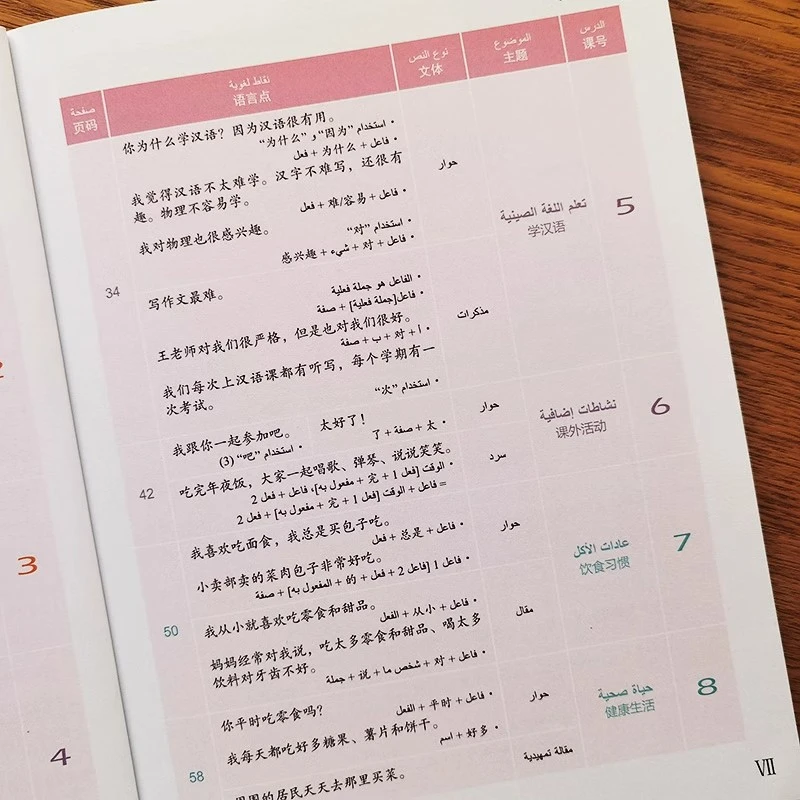 الدرس
课号
الموضوع
主题
نوع النص
文体
نقاط لغوية
语言点
صفحة
页码
5
تعلم اللغة الصينية
学汉语
حوار
你为什么学汉语？因为汉语很有用。
• استخدام "因为" و "为什么"
• فاعل + 为什么 + فعل
我觉得汉语不太难学。汉字不难写，还很有
趣。物理不容易学。
• فاعل + 难/容易 + فعل
我对物理也很感兴趣。
• استخدام "对"
• فاعل + 对 + شيء + 感兴趣
34
مذكرات
写作文最难。
• الفاعل هو جملة فعلية
• فاعل[جملة فعلية] + صفة
王老师对我们很严格，但是也对我们很好。
• أ + 对 + ب + صفة
我们每次上汉语课都有听写，每个学期有一
次考试。
• استخدام "次"
6
نشاطات إضافية
课外活动
حوار
我跟你一起参加吧。 太好了！
• استخدام "吧" (3)
• 太 + صفة + 了
42
سرد
吃完年夜饭，大家一起唱歌、弹琴、说说笑笑。
• الوقت [فعل 1 + 完 + مفعول به]، فاعل + فعل 2
= فاعل + الوقت [فعل 1 + 完 + مفعول به] + فعل 2
7
عادات الأكل
饮食习惯
حوار
我喜欢吃面食，我总是买包子吃。
• فاعل + 总是 + فعل
小卖部卖的菜肉包子非常好吃。
• فاعل 1 [فاعل 2 + فعل + 的 + المفعول به] + صفة
50
مقال
我从小就喜欢吃零食和甜品。
• فاعل + 从小 + الفعل
妈妈经常对我说，吃太多零食和甜品、喝太多
饮料对牙齿不好。
• فاعل + 对 + شخص ما + 说 + جملة
8
حياة صحية
健康生活
حوار
你平时吃零食吗？
• فاعل + 平时 + الفعل
我每天都吃好多糖果、薯片和饼干。
• 好多 + اسم
58
مقالة تمهيدية
的居民天天去那里买菜。
VII
3
4